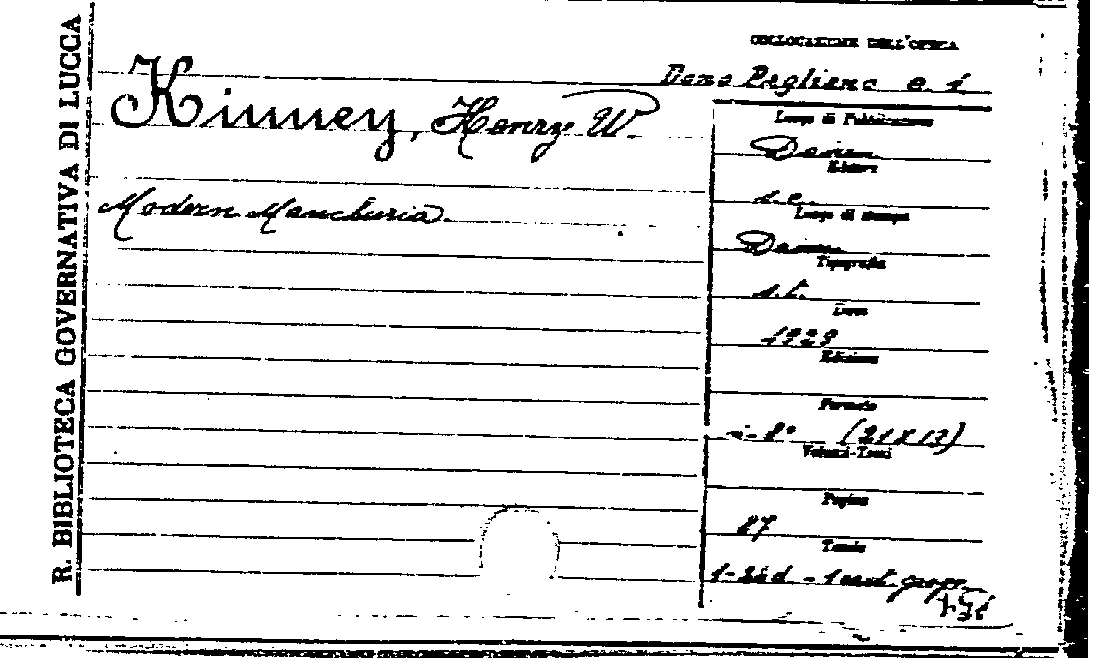 R. BIBLIOTECA GOVERNATIVA DI LUCCA
COLLOCAZIONE DELL'OPERA
Kinney, Henry W.
Modern Manchuria.
Luogo di Pubblicazione
Dairen
Editore
s.e.
Luogo di stampa
Dairen
Tipografia
s.t.
Data
1929
Edizione
Formato
in-8° (21x13)
Volumi-Tomi
Pagine
87
Tavole